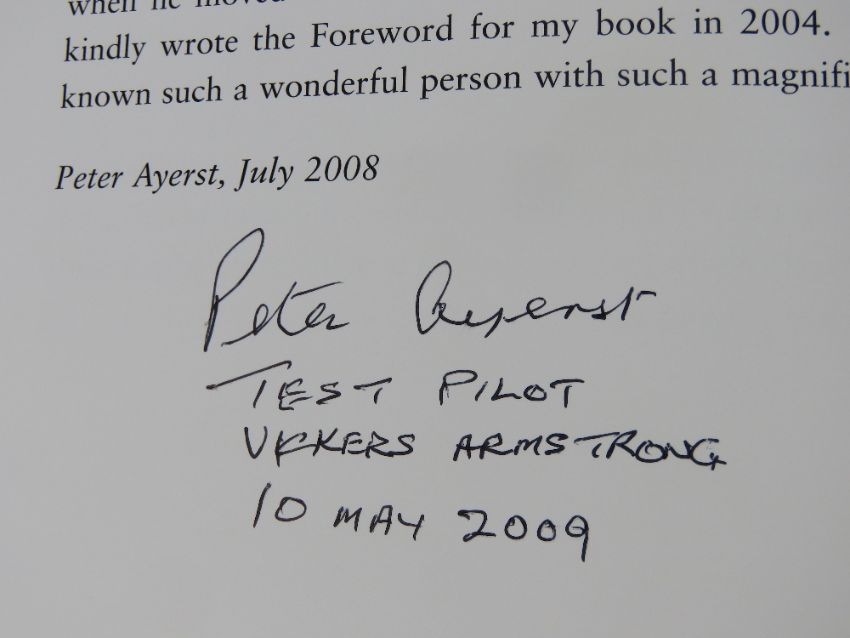 when he moved
kindly wrote the Foreword for my book in 2004.
known such a wonderful person with such a magnifi
Peter Ayerst, July 2008
Peter Ayerst
TEST PILOT
VICKERS ARMSTRONG
10 MAY 2009